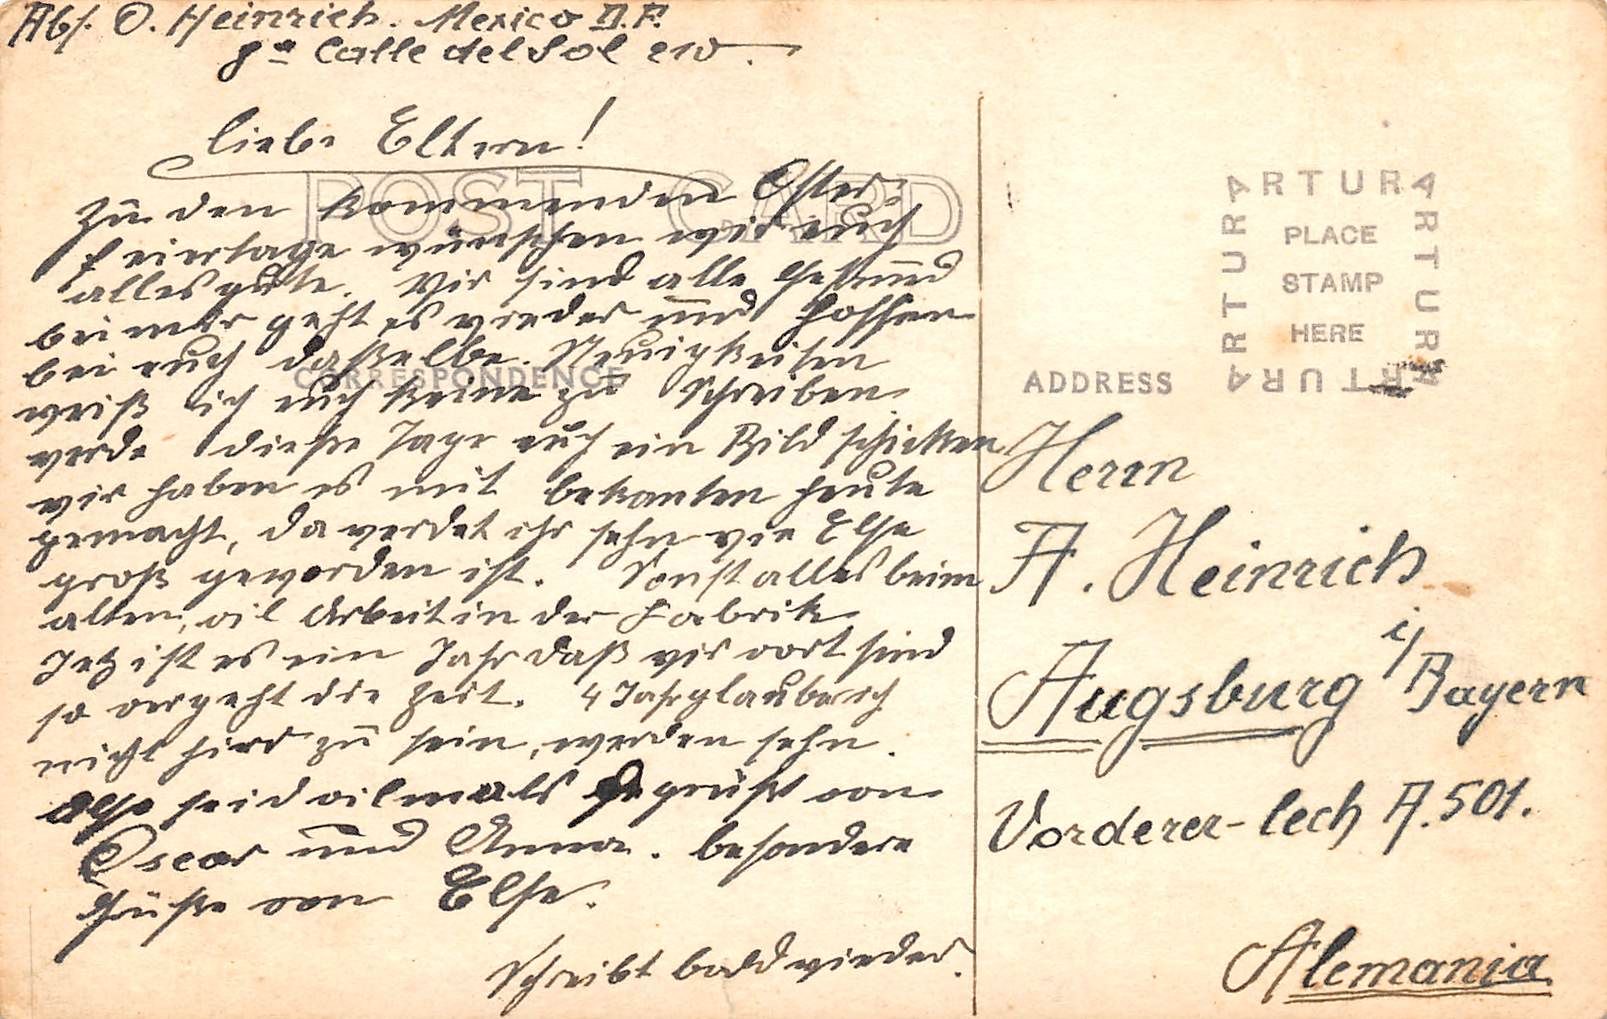 Abs. O. Heinrich. Mexico D.F.
8ª Calle del Sol 210.
POST CARD
CORRESPONDENCE
Liebe Eltern!
Zu den kommenden Oster-
feiertage wünschen wir euch
alles gute. Wir sind alle Gesund
bei mir geht es wieder und hoffen
bei euch daßelbe. Neuigkeiten
weiß ich euch keine zu Schreiben
werde dieße Tage euch ein Bild schicken
wir haben es mit bekanten heute
gemacht, da werdet ihr sehn wie Else
groß geworden ist. Sonst alles beim
alten, vil Arbeit in der Fabrik
Jetz ist es ein Jahr daß wir vort sind
so vergeht die Zeit. 4 Jahr glaube ich
nicht hier zu sein, werden sehn.
Also seid vilmals gegrüßt von
Oscar und Anna. besondere
Grüße von Else.
Schreibt bald wieder.
ARTURA
ARTURA
ARTURA
ARTURA
PLACE
STAMP
HERE
ADDRESS
Herrn
A. Heinrich
Augsburg i/Bayern
Vorderer-lech A.501.
Alemania